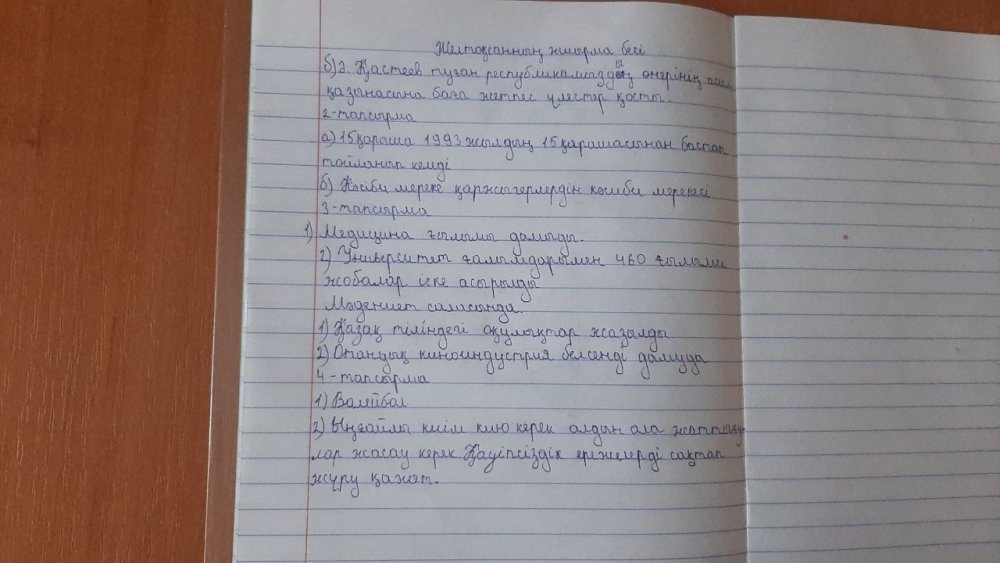 Желтоқсанның жиырма бесі
б) Ә. Қастеев туған республикамыздың өнерінің асыл
қазынасына баға жетпес үлестер қосты.
2-тапсырма
а) 15 қараша 1993 жылдың 15 қарашасынан бастап
тойланып келді
б) Кәсіби мереке қаржыгерлердін кәсиби мерекесі
3-тапсырма
1) Медицина ғылымы дамыды.
2) Университет ғалымдарымен 460 ғылыми
жобалар іске асырылды
Мәдениет саласында.
1) Қазақ тіліндегі оқулықтар жазылды
2) Отандық киноиндустрия белсенді дамуда
4-тапсырма
1) Валейбол
2) Ыңғайлы киім кию керек алдын ала жаттығу-
лар жасау керек Қауіпсіздік ережелерді сақтап
жүру қажет.